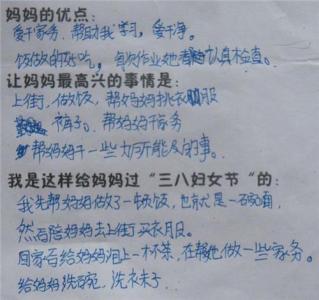 妈妈的优点:
爱干家务、帮助我学习,爱干净。
饭做的好吃。每次作业她都认真检查。
让妈妈最高兴的事情是:
上街、做饭,帮妈妈挑衣服
裤子。帮妈妈干家务
帮妈妈干一些力所能及的事。
我是这样给妈妈过“三八妇女节”的:
我先帮妈妈做了一顿饭,也就是一碗面,
然后陪妈妈去上街买衣服。
回家后给妈妈泡上一杯茶,在帮她做一些家务。
给妈妈洗碗,洗衣子